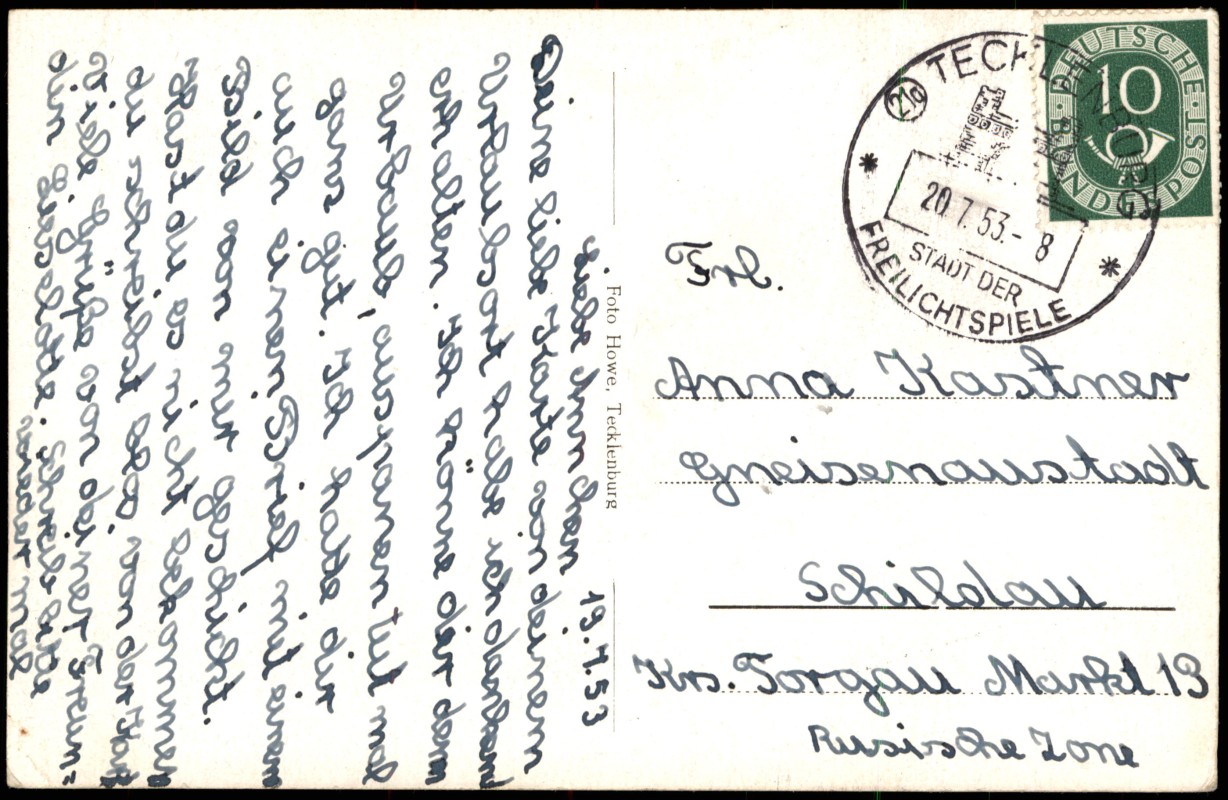 Liebe Annchen 19.7.53
Deine liebe Karte von deinem
Urlaubsort habe ich dankend
erhalten. Ich köne dir den
Urlaub, ausspanen tut mal
ganz gut. Ich hatte dir
auch einen Brief mit einem
Bild von mir geschickt.
Hast du es nicht bekommen
du schreibst blos von der Kart
Viele Grüße von deiner Freun=
din Lieselotte. Schreib bitte
wieder mal
Foto Howe, Tecklenburg
21a TECKLENBURG
20.7.53.-8
STADT DER
FREILICHTSPIELE
DEUTSCHE
10
BUNDESPOST
Frl.
Anna Kastner
Gneisenaustadt
Schildau
Krs. Torgau Markt 13
Rusische Zone